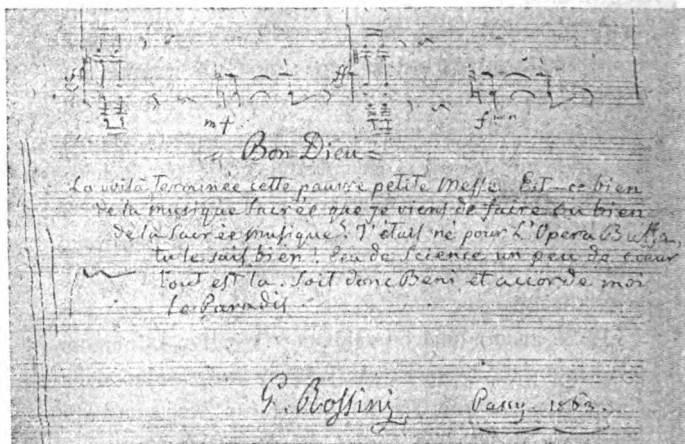 mf
f
Bon Dieu =
La voilà terminée cette pauvre petite Messe. Est-ce bien
de la musique Sacrée que je viens de faire ou bien
de la Sacrée musique? J'étais né pour L'Opera Buffa,
tu le sais bien! Peu de Science un peu de cœur
tout est la. Soit donc Beni et accorde moi
le Paradis
G. Rossini
Passy. 1863.